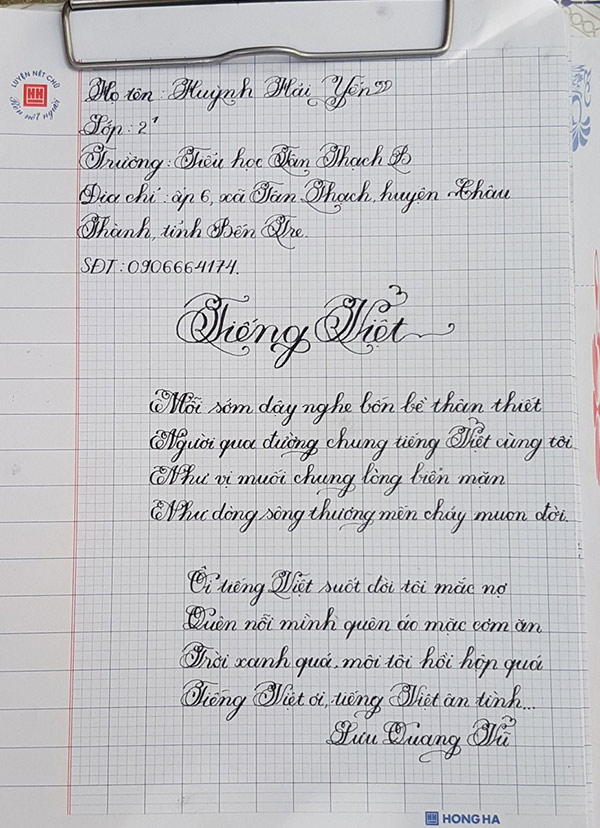 LUYỆN NÉT CHỮ
HH
Rèn nét người
Họ tên: Huỳnh Hải Yến
Lớp: 2¹
Trường: Tiểu học Tân Thạch B
Địa chỉ: ấp 6, xã Tân Thạch, huyện Châu
Thành, tỉnh Bến Tre.
SĐT: 0906664174.
Tiếng Việt
Mỗi sớm dậy nghe bốn bề thân thiết
Người qua đường chung tiếng Việt cùng tôi
Như vị muối chung lòng biển mặn
Như dòng sông thương mến chảy muôn đời.
Ôi tiếng Việt suốt đời tôi mắc nợ
Quên nỗi mình quên áo mặc cơm ăn
Trời xanh quá, môi tôi hồi hộp quá
Tiếng Việt ơi, tiếng Việt ân tình...
Lưu Quang Vũ
HH HONG HA